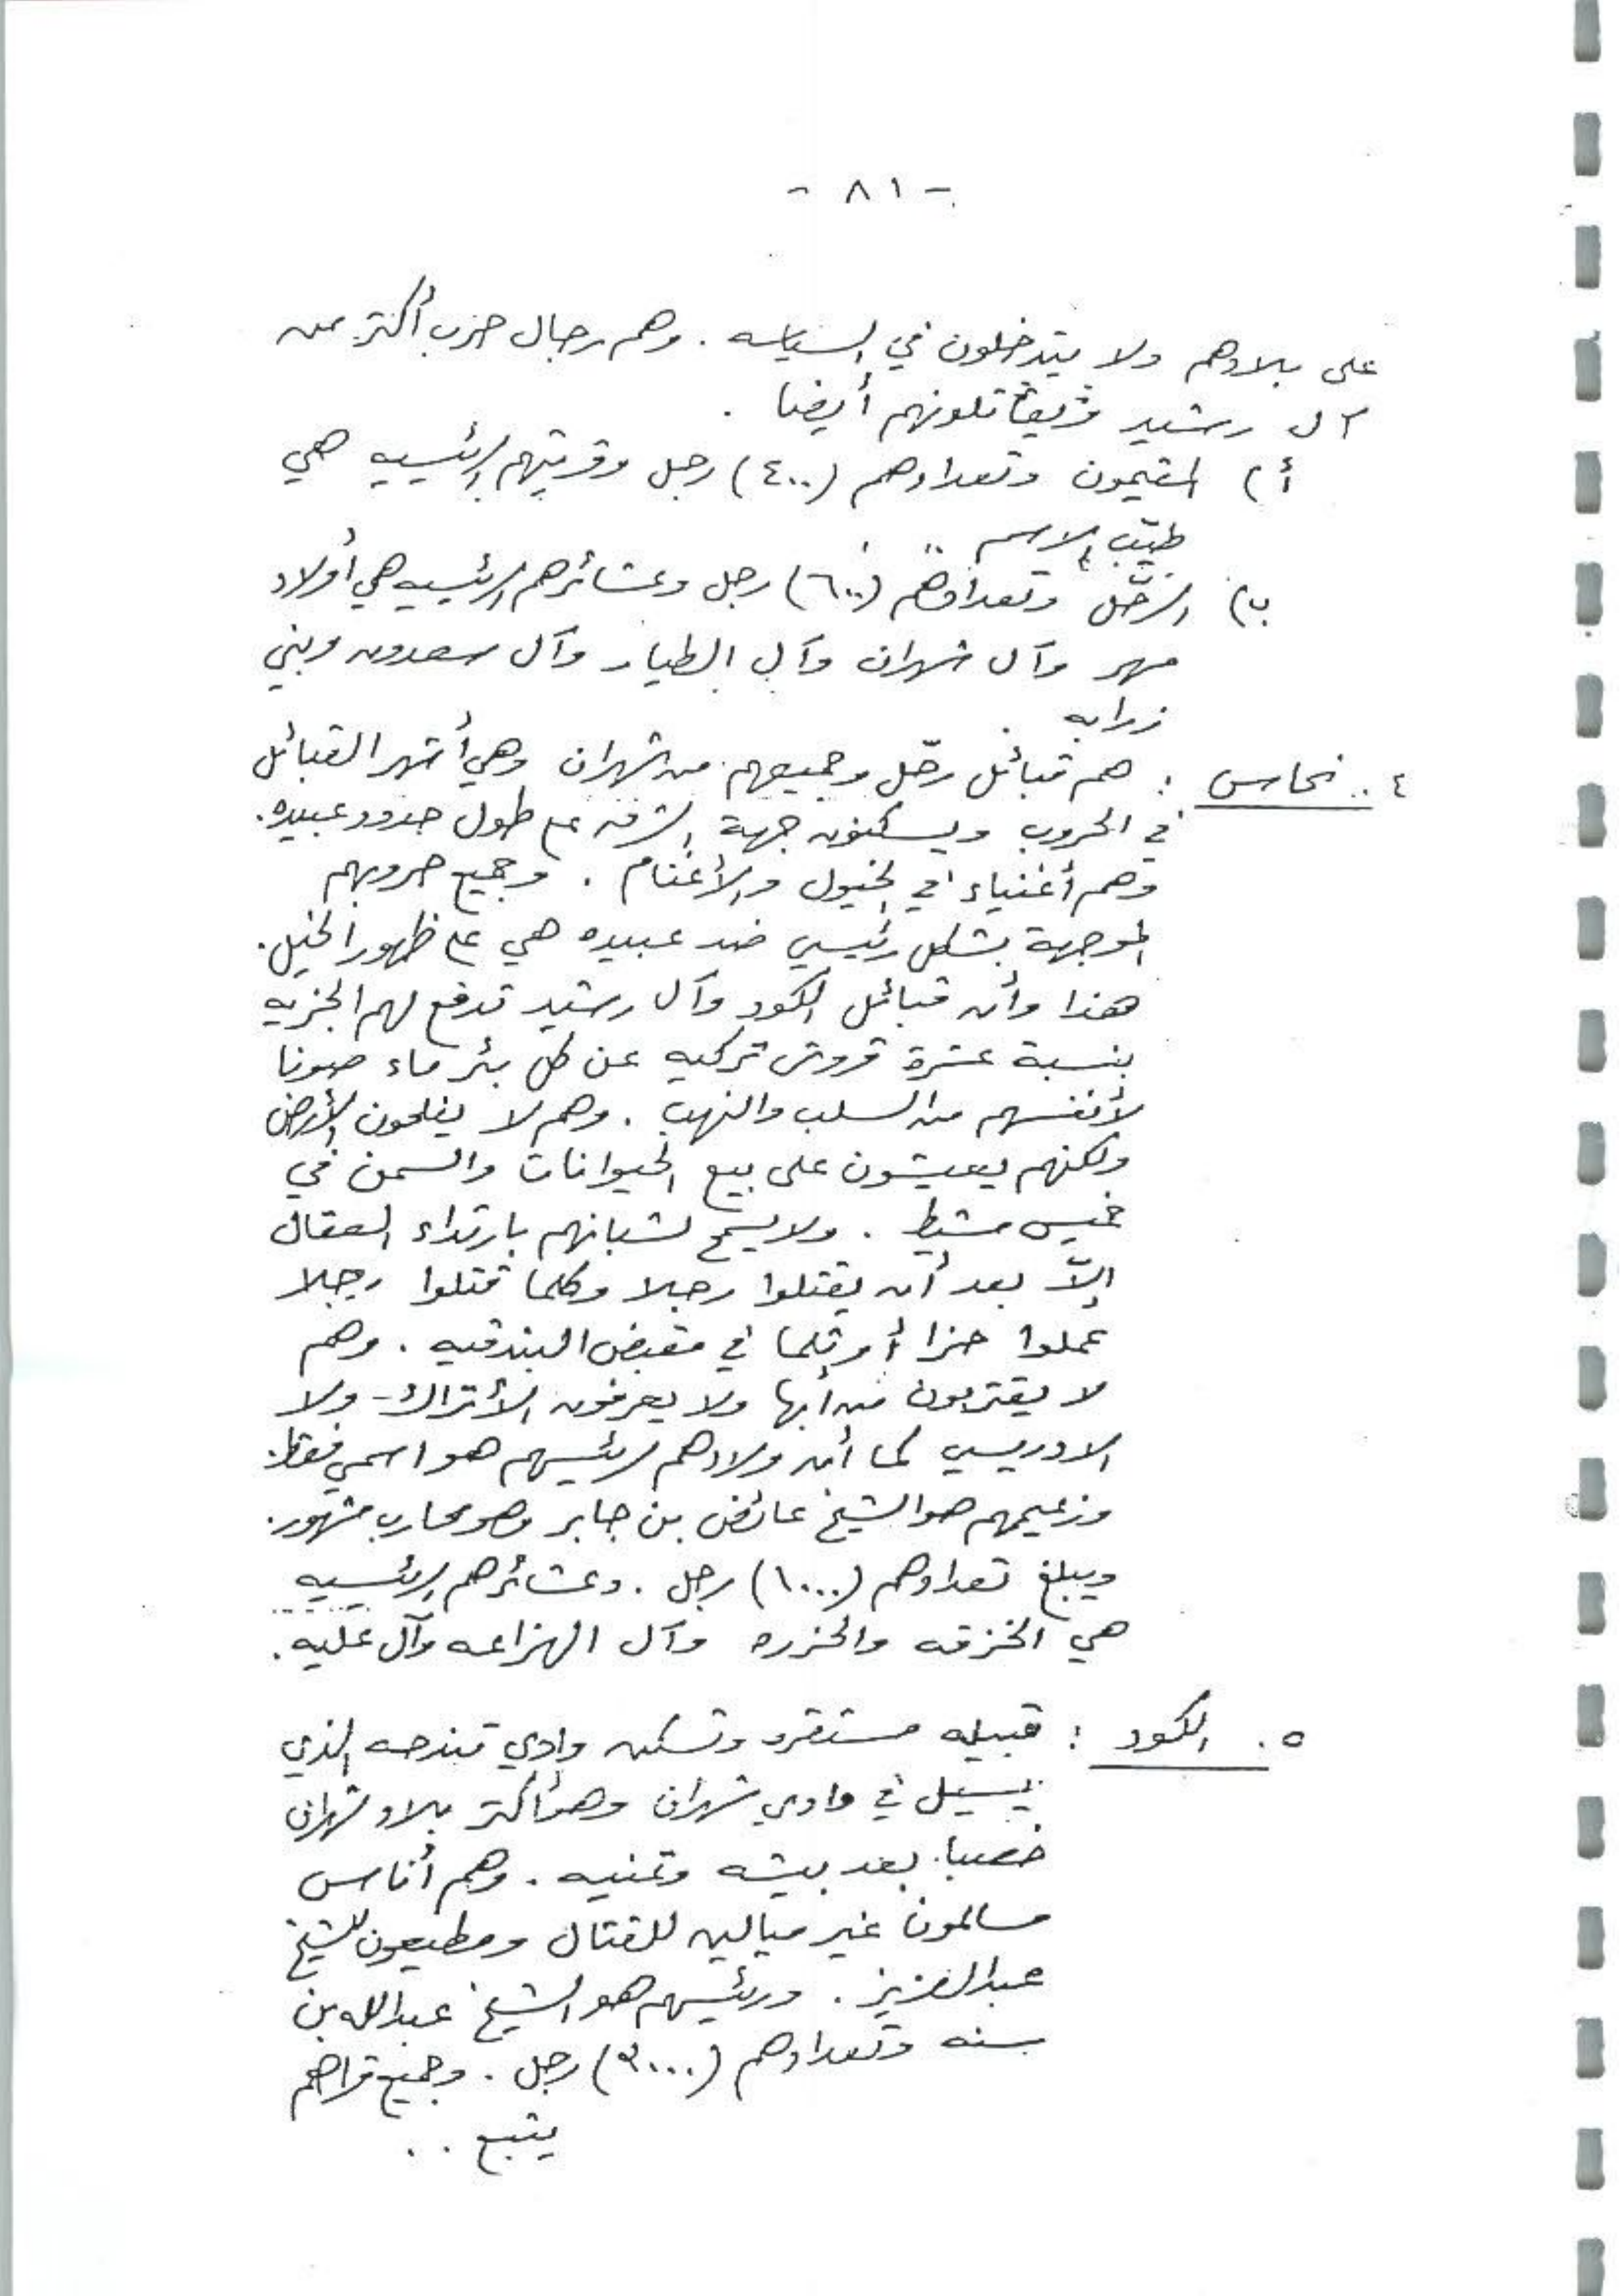 - ٨١ -
على بلادهم ولا يتدخلون في السياسه . وهم رجال حرب أكثر من
آل رشيد ويقاتلونهم أيضا .
أ) المقيمون وتعدادهم (٤٠٠) رجل وقريتهم الرئيسيه هي
طيّب الاسم ..
ب) الرحّل وتعدادهم (٦٠٠) رجل وعشائرهم الرئيسيه هي أولاد
مهر وآل شهران وآل الطيار وآل سعدون وبني
زرابه .
٤ .. نحاس : هم قبائل رحّل وجميعهم من شهران وهي أشهر القبائل
في الحروب ويسكنون جهة الشرق على طول حدود عبيده .
وهم أغنياء في الخيول والأغنام . وجميع حروبهم
الموجهة بشكل رئيسي ضد عبيده هي على ظهور الخيل .
هذا وأن قبائل الكود وآل رشيد تدفع لهم الجزيه
بنسبة عشرة قروش تركيه عن كل بئر ماء صونا
لأنفسهم من السلب والنهب . وهم لا يفلحون الأرض
ولكنهم يعيشون على بيع الحيوانات والسمن في
خميس مشيط . ولا يسمح لشبانهم بارتداء العقال
إلاّ بعد أن يقتلوا رجلا وكلما قتلوا رجلا
عملوا حزا أو ثلما في مقبض البندقيه . وهم
لا يقتربون من أبها ولا يعرفون الأتراك - ولا
الادريسي كما أن ولاءهم لرئيسهم هو اسمي فقط .
وزعيمهم هو الشيخ عائض بن جابر وهو محارب مشهور .
ويبلغ تعدادهم (١٠٠٠) رجل . وعشائرهم الرئيسيه
هي الخزقه والخزره وآل الهزاعه وآل عليه .
٥ . الكود : قبيله مستقره وتسكن وادي تندحه الذي
يسيل في وادي شهران وهو أكثر بلاد شهران
خصبا بعد بيشه وتمنيه . وهم أناس
مسالمون غير ميالين للقتال ومطيعون للشيخ
عبدالعزيز . ورئيسهم هو الشيخ عبدالله بن
سنه وتعدادهم رجل . وجميع قراهم
يتبع . .